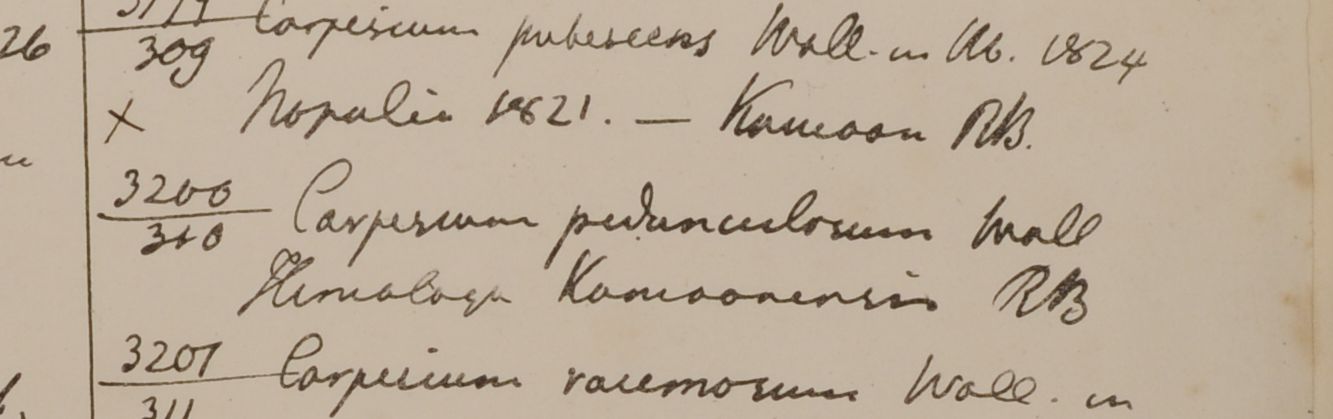 26
3199 Carpesium pubescens Wall. in Hb. 1824
309
× Napalia 1821. — Kamoon RB.
3200 Carpesium pedunculosum Wall
310
Himalaya Kamoonensis RB
3201 Carpesium racemosum Wall. in
311